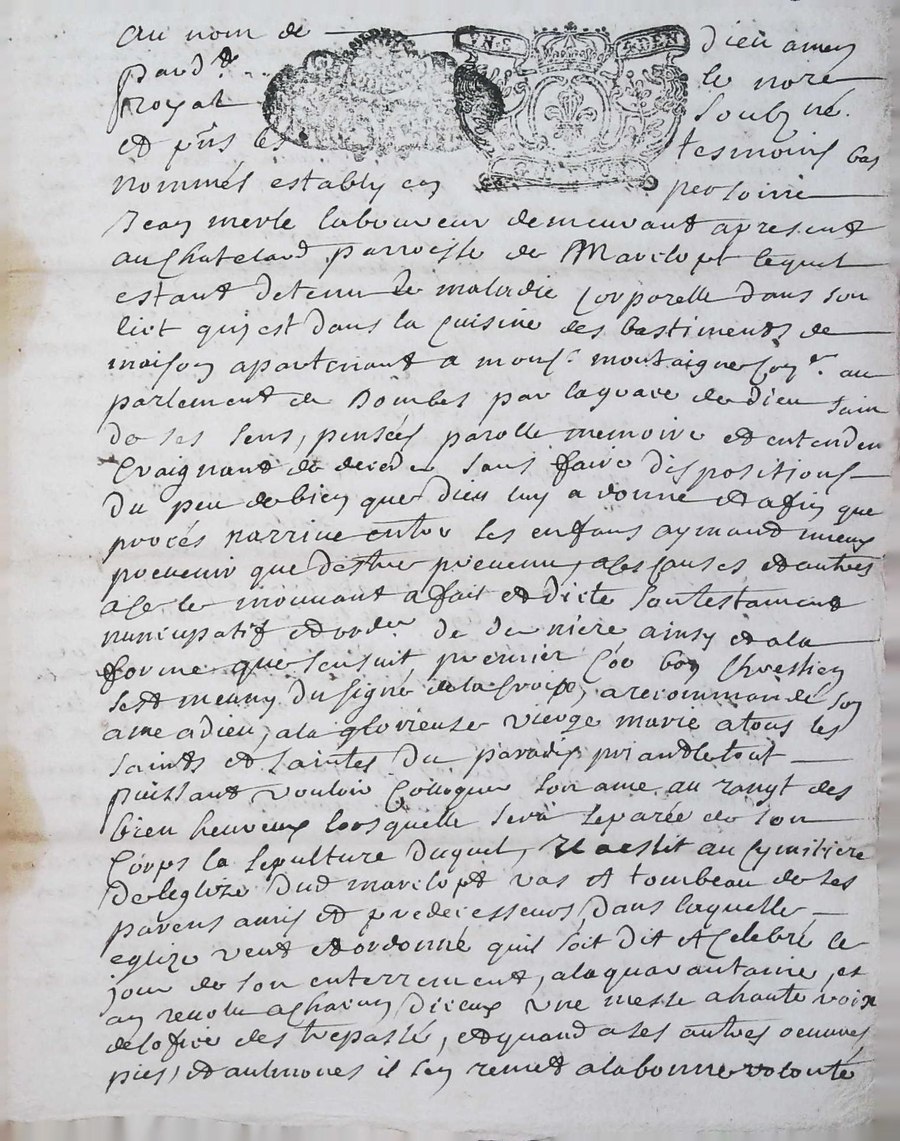 Au nom de VN S. 4 DEN dieu amen
pard.t le nore
Royal soubz.né.
et pñs les tesmoins bas
nommés estably en personne
Jean merle laboureur demeurant apresent
au Chatelard, parroisse de Marilopt lequel
estant detenu de maladie Corporelle dans son
lict qui est dans la Cuisine des bastiments de
maison apartenant a mons.r montaigne Con.er au
parlement de Dombes par la grace de dieu sain
de ses sens, pensées parolle memoire et entenden
Craignant de deceder sans faire dispositions
du peu de bien que dieu luy a donné et afin que
procés narrive entre ses enfans aymand mieux
prevenir que destre prevenu, a ces causes et autres
a ce le mouvant a fait et dicté son testament
nuncupatif et ord.re de derniere ainsy et a la
forme que sensuit premier Coe bon Chrestien
sest muny du signe de la Croix, a recommandé son
ame a dieu, a la glorieuse vierge marie a tous les
saints et saintes du paradis priand le tout
puissant vouloir Colloquer son ame au rangt des
bien heureux lorsquelle sera separée de son
Corps la sepulture duquel, Il a eslit au Cymitiere
de leglize dud marilopt vas et tombeau de ses
parens amis et predecesseurs, dans laquelle
eglize veut et ordonne quil soit dit et Celebré le
jour de son enterrement, a la quarantaine, et
an revolu a Chacun diceux une messe a haute voix
de lofice des trepassé, et quand a ses autres oeuvres
pies, et aulmones il sen remet a la bonne volonté